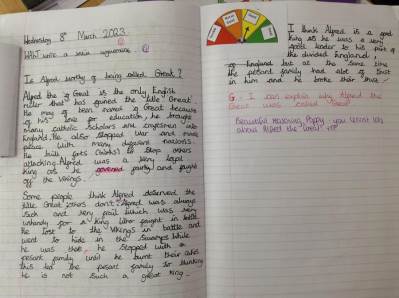 Wednesday 8th March 2023
WALT write a
Is Alfred worthy of being called Great?
Alfred the Great is the only English
ruler that has gained the title 'Great'.
He may of been named 'Great' because
of his love for education, he brought
many catholic scholars and into
England. He also stopped War and made
peace with many different nations.
He built forts (burhs) to stop others
attacking. Alfred was a very loyal
king as he governed fairly and fought
off the vikings.
Some people think Alfred deserved the
title Great, others don't. Alfred was always
sick and very frail which was very
unhandy for a king who fought in battle
He lost to the Vikings in battle and
went to hide in the swamps. While
he was there, he stopped with a
pesant family until he burnt their cakes
this led the pesant family to thinking
he is not such a great king.
I think Alfred is a good
king as he was a very
good leader to his part of
the divided England,
or England but at the same time
the pesant family had alot of trust
in him and he broke their trust.
G, I can explain why Alfred the
Great was called 'Great'
Beautiful reasoning Poppy, you
about Alfred the Great. +1P